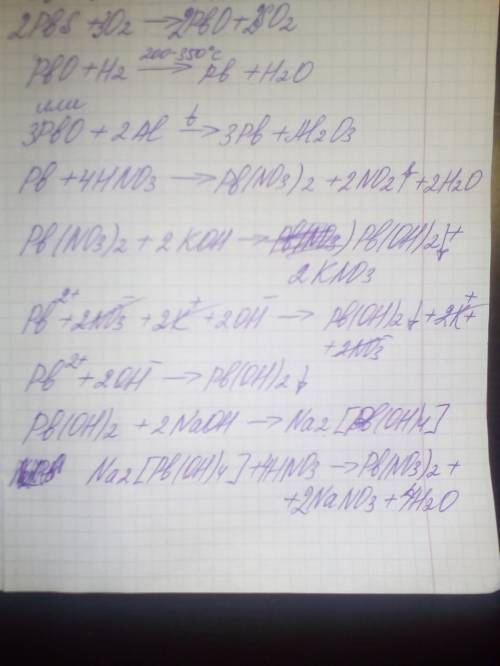 2PbS + 3O2 → 2PbO + 2SO2
PbO + H2 200-350°C → Pb + H2O
или
3PbO + 2Al t → 3Pb + Al2O3
Pb + 4HNO3 → Pb(NO3)2 + 2NO2↑ + 2H2O
Pb(NO3)2 + 2KOH → Pb(OH)2↓ +
2KNO3
Pb2+ + 2NO3- + 2K+ + 2OH- → Pb(OH)2↓ + 2K+ +
+ 2NO3-
Pb2+ + 2OH- → Pb(OH)2↓
Pb(OH)2 + 2NaOH → Na2[Pb(OH)4]
Na2[Pb(OH)4] + 4HNO3 → Pb(NO3)2 +
+ 2NaNO3 + 4H2O